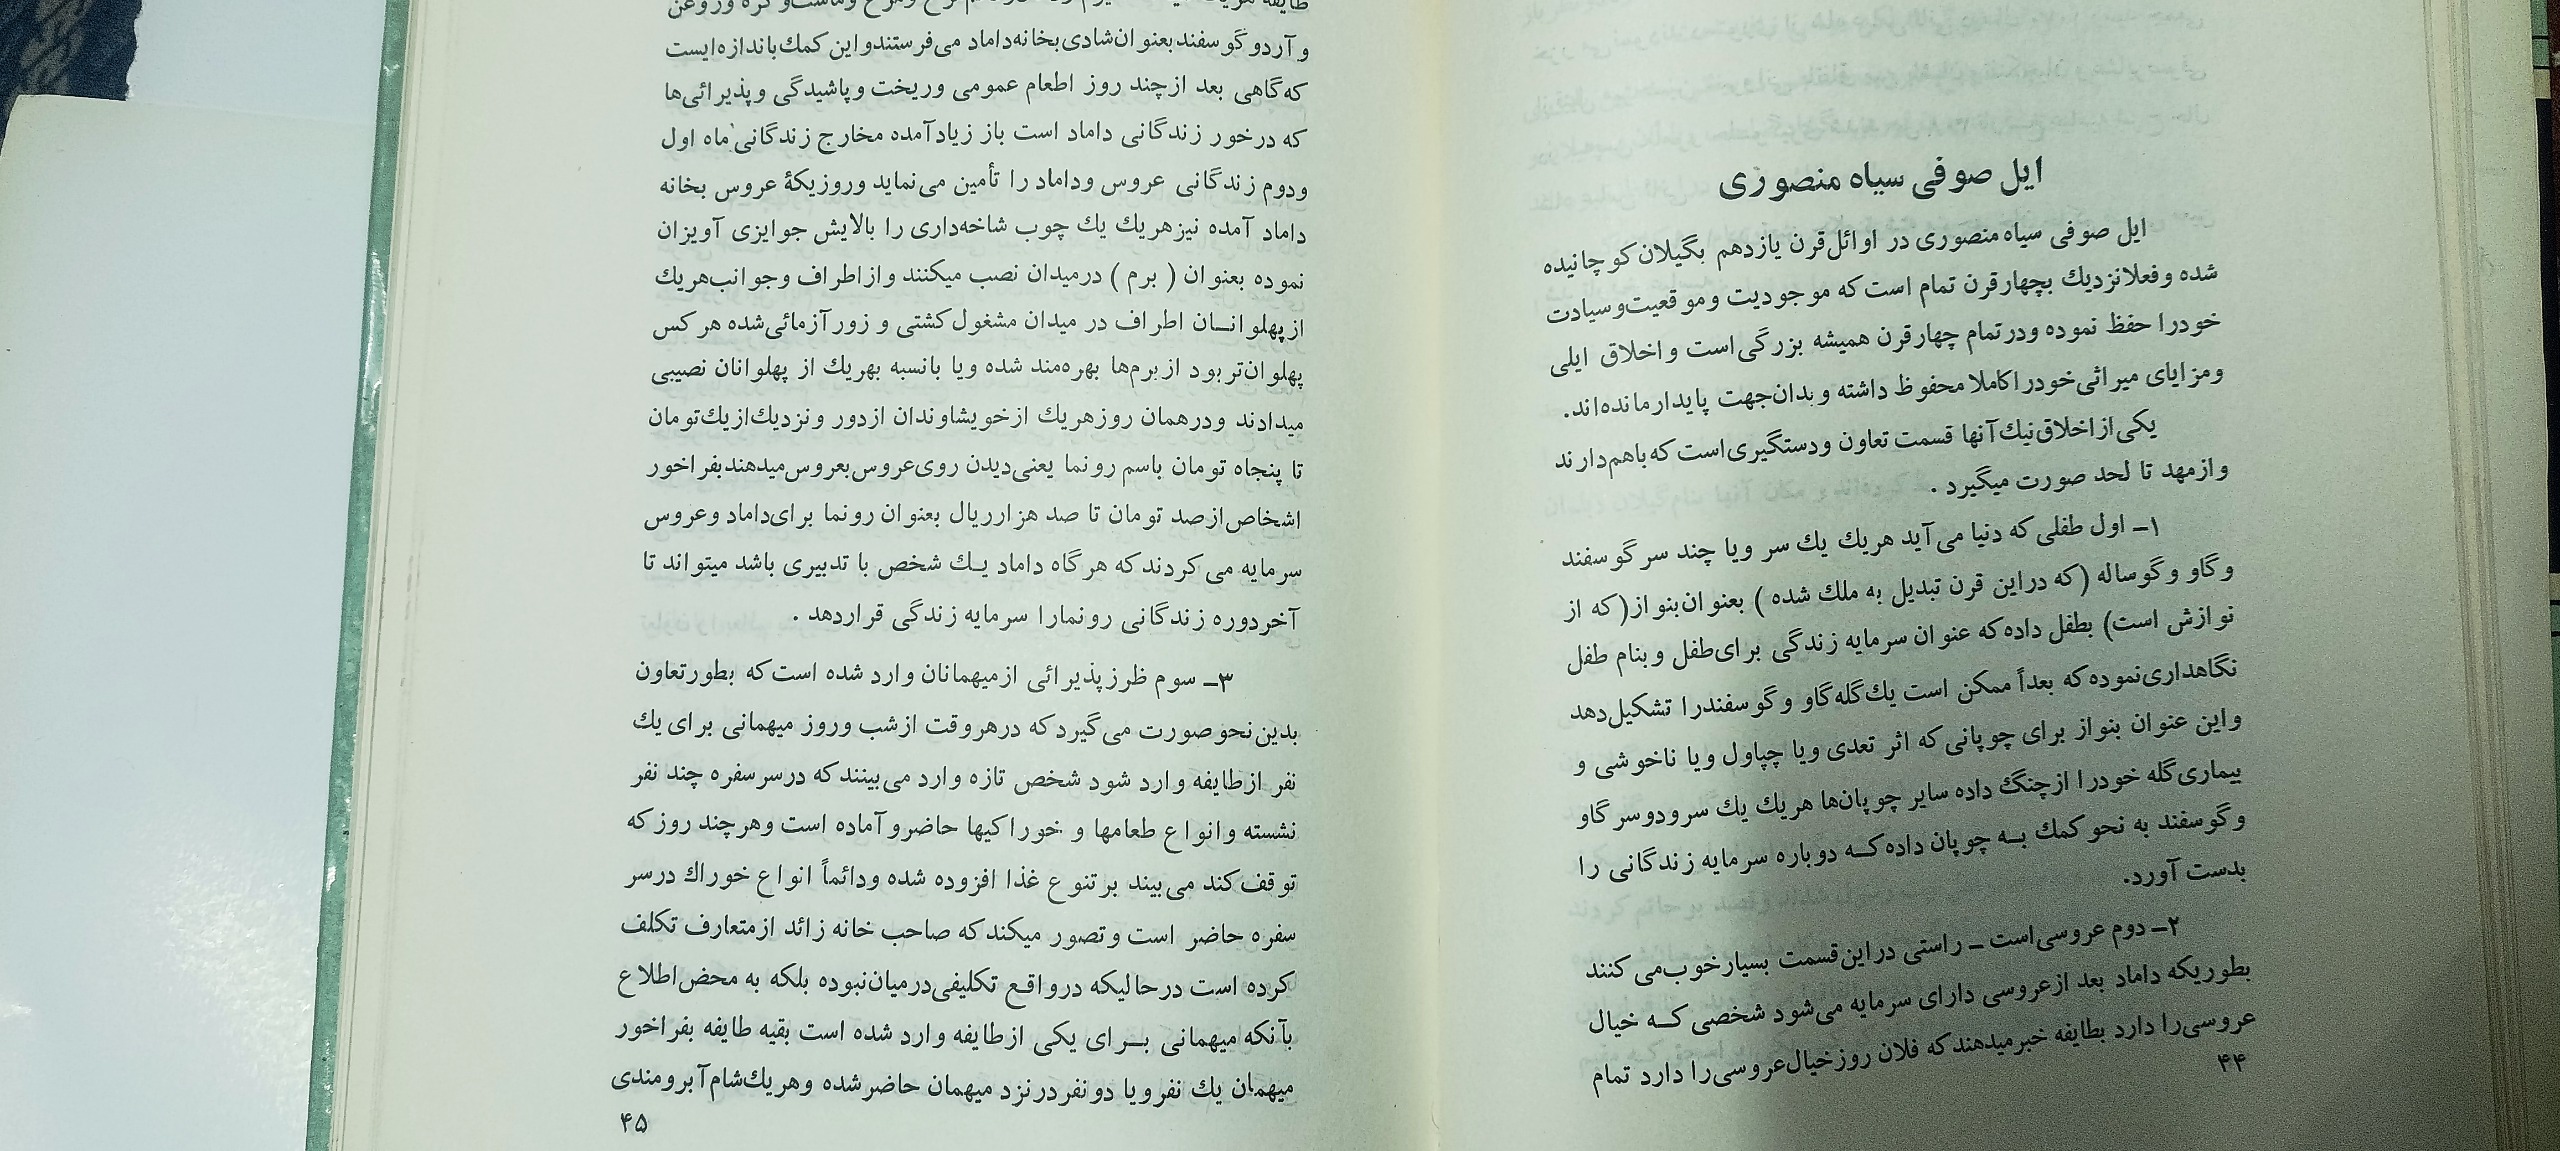 ایل صوفی سیاه منصوری
ایل صوفی سیاه منصوری در اوائل قرن یازدهم بگیلان کوچانیده
شده و فعلا نزدیك بچهار قرن تمام است که موجودیت و موقعیت و سیادت
خودرا حفظ نموده و در تمام چهار قرن همیشه بزرگی است و اخلاق ایلی
و مزایای میراثی خودرا کاملا محفوظ داشته و بدان جهت پایدار مانده‌اند.
یکی از اخلاق نیك آنها قسمت تعاون و دستگیری است که باهم دارند
و از مهد تا لحد صورت میگیرد .
۱ــ اول طفلی که دنیا می‌آید هریك یك سر ویا چند سر گوسفند
و گاو و گوساله (که دراین قرن تبدیل به ملك شده ) بعنوان بنواز(که از
نوازش است) بطفل داده که عنوان سرمایه زندگی برای طفل و بنام طفل
نگاهداری نموده که بعداً ممکن است یك گله گاو و گوسفندرا تشکیل دهد
واین عنوان بنواز برای چوپانی که اثر تعدی ویا چپاول ویا ناخوشی و
بیماری گله خودرا ازچنگ داده سایر چوپان‌ها هریك یك سرودوسر گاو
و گوسفند به نحو کمك بـه چوپان داده کـه دوباره سرمایه زندگانی را
بدست آورد.
۲ــ دوم عروسی است ــ راستی دراین قسمت بسیارخوب می کنند
بطوریکه داماد بعد ازعروسی دارای سرمایه می‌شود شخصی کـه خیال
عروسی‌را دارد بطایفه خبرمیدهند که فلان روزخیال عروسی‌را دارد تمام
۴۴
و آرد و گوسفند بعنوان شادی بخانه داماد می‌فرستند و این کمك باندازه‌ایست
که گاهی بعد ازچند روز اطعام عمومی وریخت و پاشیدگی و پذیرائی‌ها
که درخور زندگانی داماد است باز زیاد آمده مخارج زندگانی ماه اول
ودوم زندگانی عروس وداماد را تأمین می‌نماید وروزیکهٔ عروس بخانه
داماد آمده نیزهریك یك چوب شاخه‌داری را بالایش جوایزی آویزان
نموده بعنوان ( برم ) درمیدان نصب میکنند و ازاطراف وجوانب هریك
ازپهلوانـان اطراف در میدان مشغول کشتی و زورآزمائی شده هرکس
پهلوان‌تر بود ازبرم‌ها بهره‌مند شده ویا بانسبه بهریك از پهلوانان نصیبی
میدادند ودرهمان روزهریك ازخویشاوندان ازدور و نزدیك ازیك تومان
تا پنجاه تومان باسم رونما یعنی دیدن روی عروس بعروس میدهند بفراخور
اشخاص ازصد تومان تا صد هزارریال بعنوان رونما برای داماد وعروس
سرمایه می کردند که هرگاه داماد یـك شخص با تدبیری باشد میتواند تا
آخردوره زندگانی رونمارا سرمایه زندگی قراردهد .
۳ــ سوم طرزپذیرائی ازمیهمانان وارد شده است که بطورتعاون
بدین نحوصورت می‌گیرد که درهروقت ازشب وروز میهمانی برای یك
نفر ازطایفه وارد شود شخص تازه وارد می‌بینند که درسرسفره چند نفر
نشسته وانواع طعامها و خوراکیها حاضرو آماده است وهرچند روز که
توقف کند می‌بیند برتنوع غذا افزوده شده ودائماً انواع خوراك درسر
سفره حاضر است وتصور میکند که صاحب خانه زائد ازمتعارف تکلف
کرده است درحالیکه درواقـع تکلیفی درمیان نبوده بلکه به محض اطلاع
بآنکه میهمانی بـرای یکی ازطایفه وارد شده است بقیه طایفه بفراخور
میهمان یك نفرویا دونفردرنزد میهمان حاضرشده وهریك شام آبرومندی
۴۵